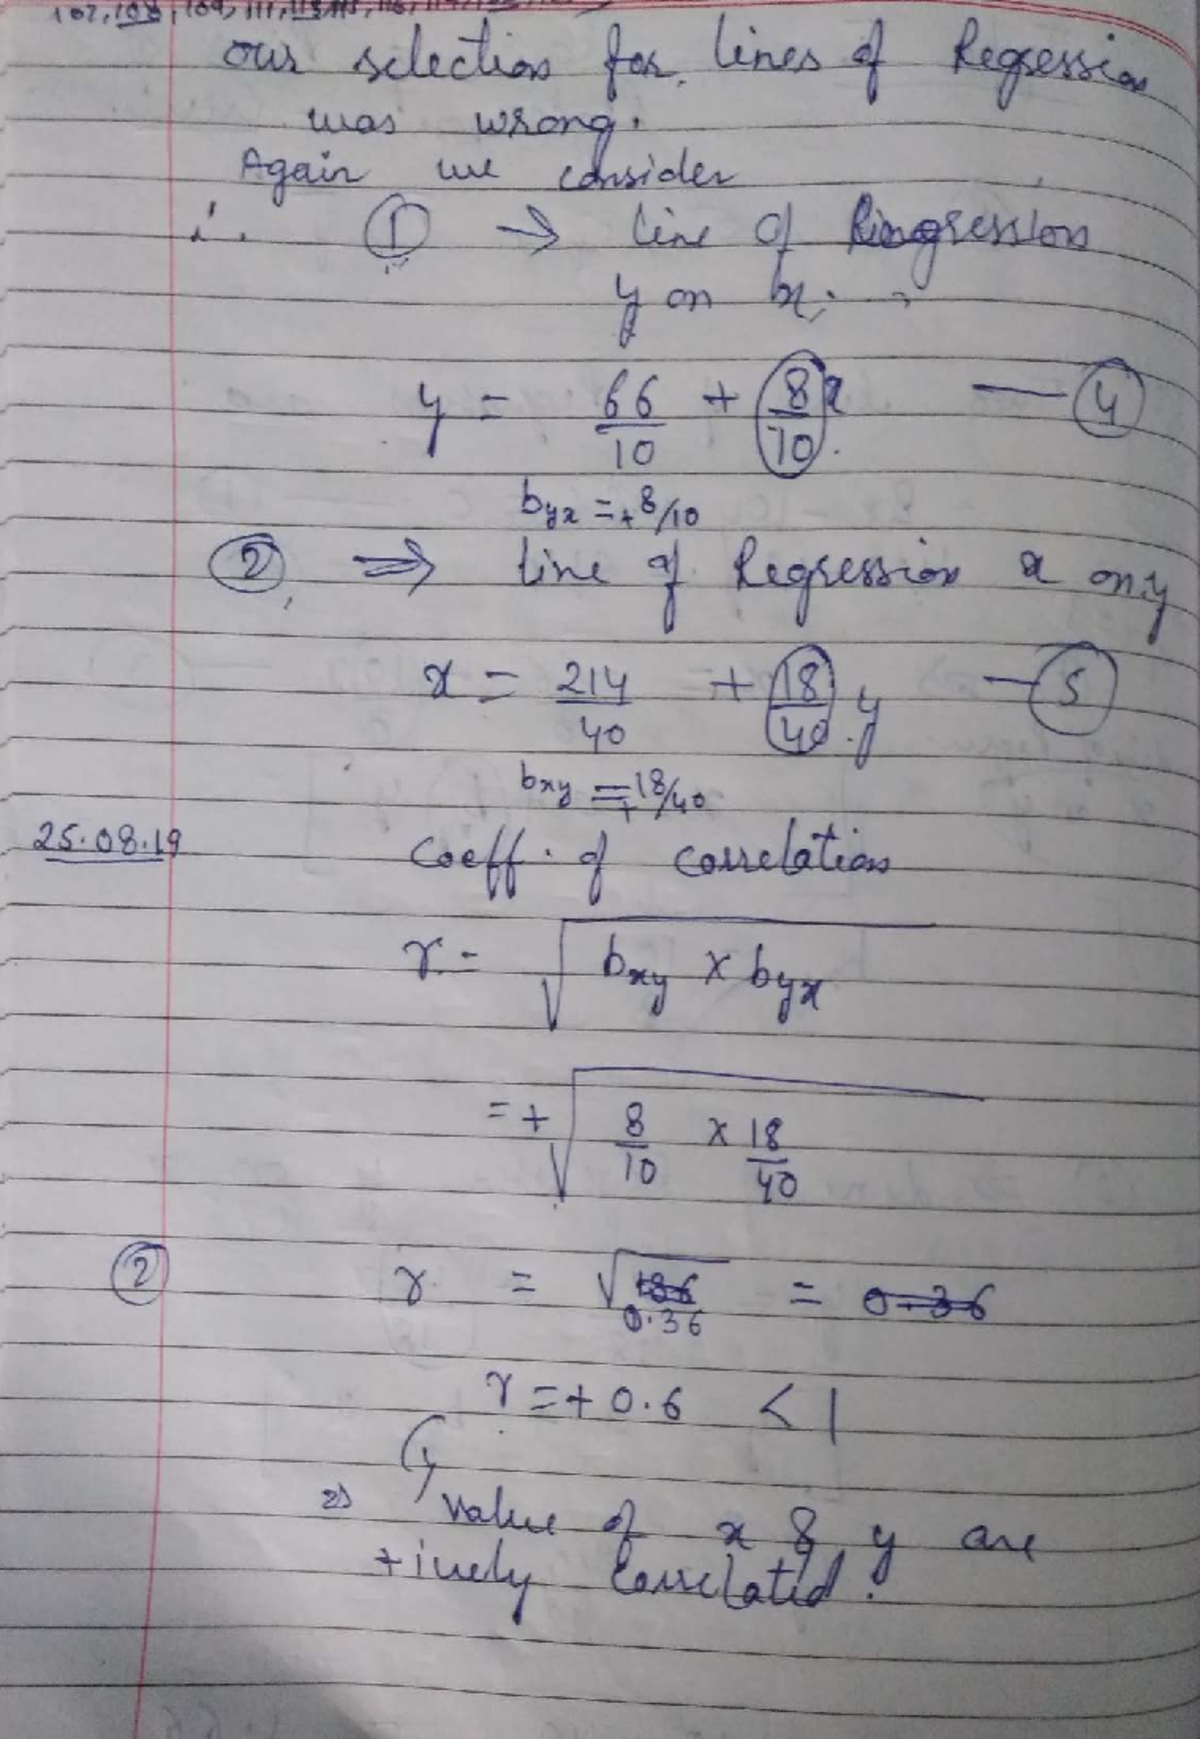 107, 108, 109, 111,
our selection for lines of Regression
was wrong.
Again we consider
∴ ① → line of Ringression
y on x.
y = 66/10 + 8/10 x — ④
byx = +8/10
② ⇒ line of Regression x on y
x = 214/40 + 18/40 y — ⑤
bxy = +18/40
25.08.19
Coeff. of correlation
r = √ bxy × byx
= + √ 8/10 × 18/40
② r = √ 0.36 = 0.36
r = + 0.6 < 1
⇒ value of x & y are
+ively correlated.